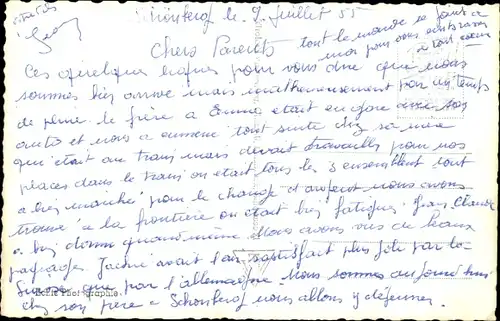 Schönberg le 9 Juillet 55
Chers Parents
tout le monde se joint a
moi pour vous embrasser
a tout cœur
Ces quelques lignes pour vous dire que nous
sommes bien arrivé mais malheureusement par un temps
de pluie. le frère a était en gare avec son
auto et nous a amener tout suite chez sa mère
qui était au train mais devait travailler pour nos
places dans le train on était tous les 3 ensemble tout
a bien marché pour le change et aufort nous avons
trouvé a la frontière on était bien fatigués. Jean Claude
a bien dormi quand même. Nous avons vus de beaux
paysages. avait l'air satisfait plus joli par la
Suisse que par l'allemagne. Nous sommes aujourd'hui
chez son frère a Schönberg nous allons y déjeuner.
Echte Photographie